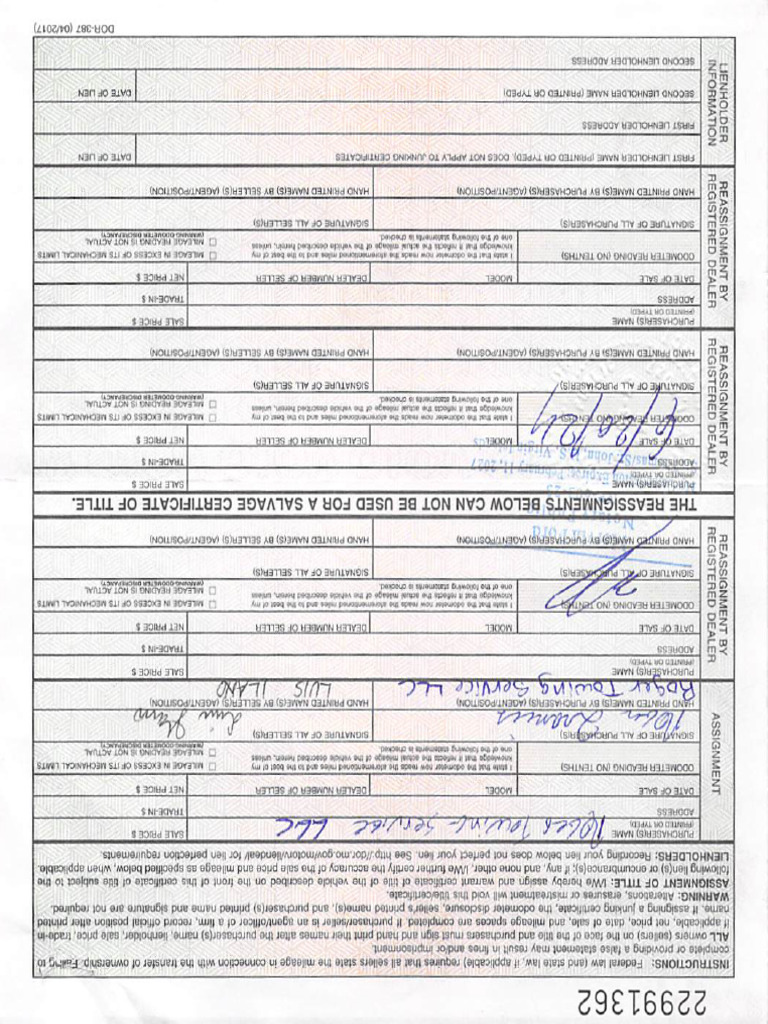 22991362
INSTRUCTIONS: Federal law (and state law, if applicable) requires that all sellers state the mileage in connection with the transfer of ownership. Failing to
complete or providing a false statement may result in fines and/or imprisonment.
ALL owners (sellers) on the face of the title and purchasers must sign and hand print their names after the purchaser(s) name, lienholder, sale price, trade-in
if applicable, net price, date of sale, and mileage spaces are completed. If purchaser/seller is an agent/officer of a firm, record official position after printed
name. If assigning a junking certificate, the odometer disclosure, seller's printed name(s), and purchaser(s) printed name and signature are not required.
WARNING: Alterations, erasures or mistreatment will void this title/certificate.
ASSIGNMENT OF TITLE: I/We hereby assign and warrant certificate of title of the vehicle described on the front of this certificate of title subject to the
following lien(s) or encumbrance(s); if any, and none other. I/We further certify the accuracy of the sale price and mileage as specified below, when applicable.
LIENHOLDERS: Recording your lien below does not perfect your lien. See http://dor.mo.gov/motorv/liendeal/ for lien perfection requirements.
ASSIGNMENT
PURCHASER(S) NAME
(PRINTED OR TYPED)
Roger Towing Service LLC
SALE PRICE $
ADDRESS
TRADE-IN $
DATE OF SALE
MODEL
DEALER NUMBER OF SELLER
NET PRICE $
ODOMETER READING (NO TENTHS)
I state that the odometer now reads the aforementioned miles and to the best of my
knowledge that it reflects the actual mileage of the vehicle described herein, unless
one of the following statements is checked.
MILEAGE IN EXCESS OF ITS MECHANICAL LIMITS
MILEAGE READING IS NOT ACTUAL
(WARNING ODOMETER DISCREPANCY)
SIGNATURE OF ALL PURCHASER(S)
SIGNATURE OF ALL SELLER(S)
HAND PRINTED NAME(S) BY PURCHASER(S) (AGENT/POSITION)
Roger Towing Service LLC
HAND PRINTED NAME(S) BY SELLER(S) (AGENT/POSITION)
LUIS ILANO
REASSIGNMENT BY
REGISTERED DEALER
PURCHASER(S) NAME
(PRINTED OR TYPED)
SALE PRICE $
ADDRESS
TRADE-IN $
DATE OF SALE
MODEL
DEALER NUMBER OF SELLER
NET PRICE $
ODOMETER READING (NO TENTHS)
I state that the odometer now reads the aforementioned miles and to the best of my
knowledge that it reflects the actual mileage of the vehicle described herein, unless
one of the following statements is checked.
MILEAGE IN EXCESS OF ITS MECHANICAL LIMITS
MILEAGE READING IS NOT ACTUAL
(WARNING ODOMETER DISCREPANCY)
SIGNATURE OF ALL PURCHASER(S)
SIGNATURE OF ALL SELLER(S)
HAND PRINTED NAME(S) BY PURCHASER(S) (AGENT/POSITION)
HAND PRINTED NAME(S) BY SELLER(S) (AGENT/POSITION)
THE REASSIGNMENTS BELOW CAN NOT BE USED FOR A SALVAGE CERTIFICATE OF TITLE.
REASSIGNMENT BY
REGISTERED DEALER
PURCHASER(S) NAME
(PRINTED OR TYPED)
SALE PRICE $
ADDRESS
TRADE-IN $
Expires: February 11, 2027
St. John, U.S. Virgin
DATE OF SALE
MODEL
DEALER NUMBER OF SELLER
NET PRICE $
ODOMETER READING (NO TENTHS)
I state that the odometer now reads the aforementioned miles and to the best of my
knowledge that it reflects the actual mileage of the vehicle described herein, unless
one of the following statements is checked.
MILEAGE IN EXCESS OF ITS MECHANICAL LIMITS
MILEAGE READING IS NOT ACTUAL
(WARNING ODOMETER DISCREPANCY)
SIGNATURE OF ALL PURCHASER(S)
SIGNATURE OF ALL SELLER(S)
HAND PRINTED NAME(S) BY PURCHASER(S) (AGENT/POSITION)
HAND PRINTED NAME(S) BY SELLER(S) (AGENT/POSITION)
REASSIGNMENT BY
REGISTERED DEALER
PURCHASER(S) NAME
(PRINTED OR TYPED)
SALE PRICE $
ADDRESS
TRADE-IN $
DATE OF SALE
MODEL
DEALER NUMBER OF SELLER
NET PRICE $
ODOMETER READING (NO TENTHS)
I state that the odometer now reads the aforementioned miles and to the best of my
knowledge that it reflects the actual mileage of the vehicle described herein, unless
one of the following statements is checked.
MILEAGE IN EXCESS OF ITS MECHANICAL LIMITS
MILEAGE READING IS NOT ACTUAL
(WARNING ODOMETER DISCREPANCY)
SIGNATURE OF ALL PURCHASER(S)
SIGNATURE OF ALL SELLER(S)
HAND PRINTED NAME(S) BY PURCHASER(S) (AGENT/POSITION)
HAND PRINTED NAME(S) BY SELLER(S) (AGENT/POSITION)
LIENHOLDER
INFORMATION
FIRST LIENHOLDER NAME (PRINTED OR TYPED), DOES NOT APPLY TO JUNKING CERTIFICATES
DATE OF LIEN
FIRST LIENHOLDER ADDRESS
SECOND LIENHOLDER NAME (PRINTED OR TYPED)
DATE OF LIEN
SECOND LIENHOLDER ADDRESS
DOR-387 (04/2017)